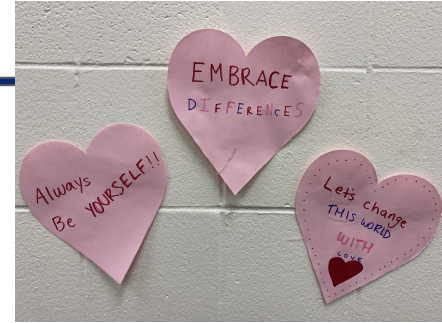 EMBRACE
DIFFERENCES
Always
Be YOURSELF!!
Let's change
THIS WORLD
WITH
LOVE